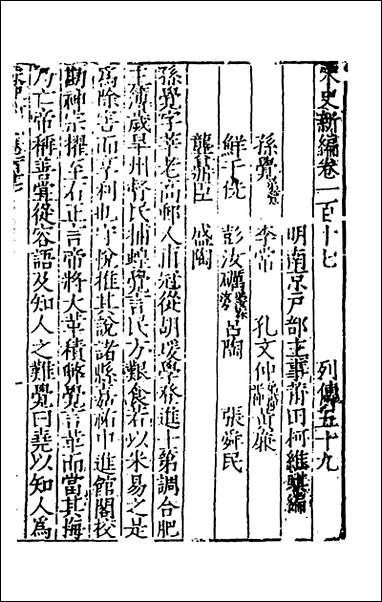 宋史新編卷一百十七　列傳五十九
明南京戶部主事莆田柯維騏編
孫覺　李常　孔文仲　黃廉
鮮于侁　彭汝礪　呂陶　張舜民
龔鼎臣　盛陶
孫覺字莘老高郵人甫冠從胡瑗學登進士第調合肥
主簿歲旱州督民捕蝗覺言民方艱食若以米易之是
爲除害而享利也守悅推其說諸縣嘉祐中進館閣校
勘神宗擢至右正言帝將大革積弊覺言革而當其悔
乃亡帝稱善嘗從容語及知人之難覺曰堯以知人爲